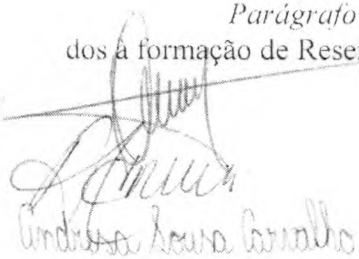 Parágrafo
dos à formação de Rese
Andresa Sousa Carvalho